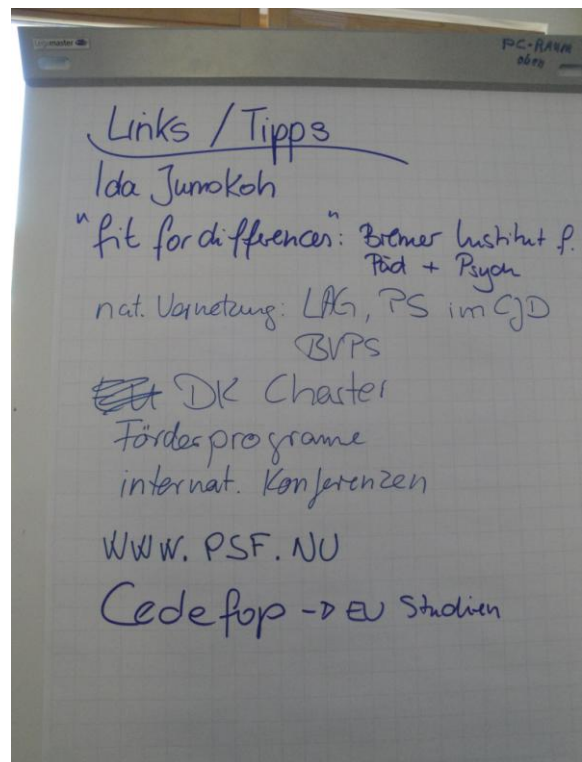 Legamaster
PC-RAUM
oben
Links / Tipps
Ida Jumokoh
"fit for differences": Bremer Institut f.
Päd + Psych
nat. Vernetzung: LAG, PS im CJD
BVPS
DK Charter
Förderprograme
internat. Konferenzen
WWW. PSF. NU
Cedefop → EU Studien